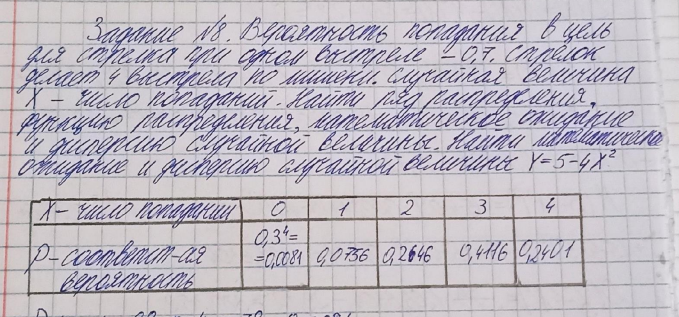 Задание №8. Вероятность попадания в цель
для стрелка при одном выстреле – 0,7. Стрелок
делает 4 выстрела по мишени. Случайная величина
X – число попаданий. Найти ряд распределения,
функцию распределения, математическое ожидание
и дисперсию случайной величины. Найти математическое
ожидание и дисперсию случайной величины Y=5-4X²
X – число попаданий 0 1 2 3 4
0,3⁴=
P-соответст-ая =0,0081 0,0756 0,2646 0,4116 0,2401
вероятность